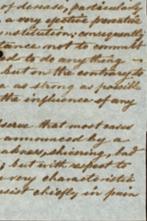 of disease, particularly
a very effective preventive
constitution, consequently
stance not to commit
ed to do any thing
but on the contrary to
a as strong as possible
the influence of any
observe that most cases
announced by a
shivering, and
; but with respect to
very characteristic
consist chiefly in pain